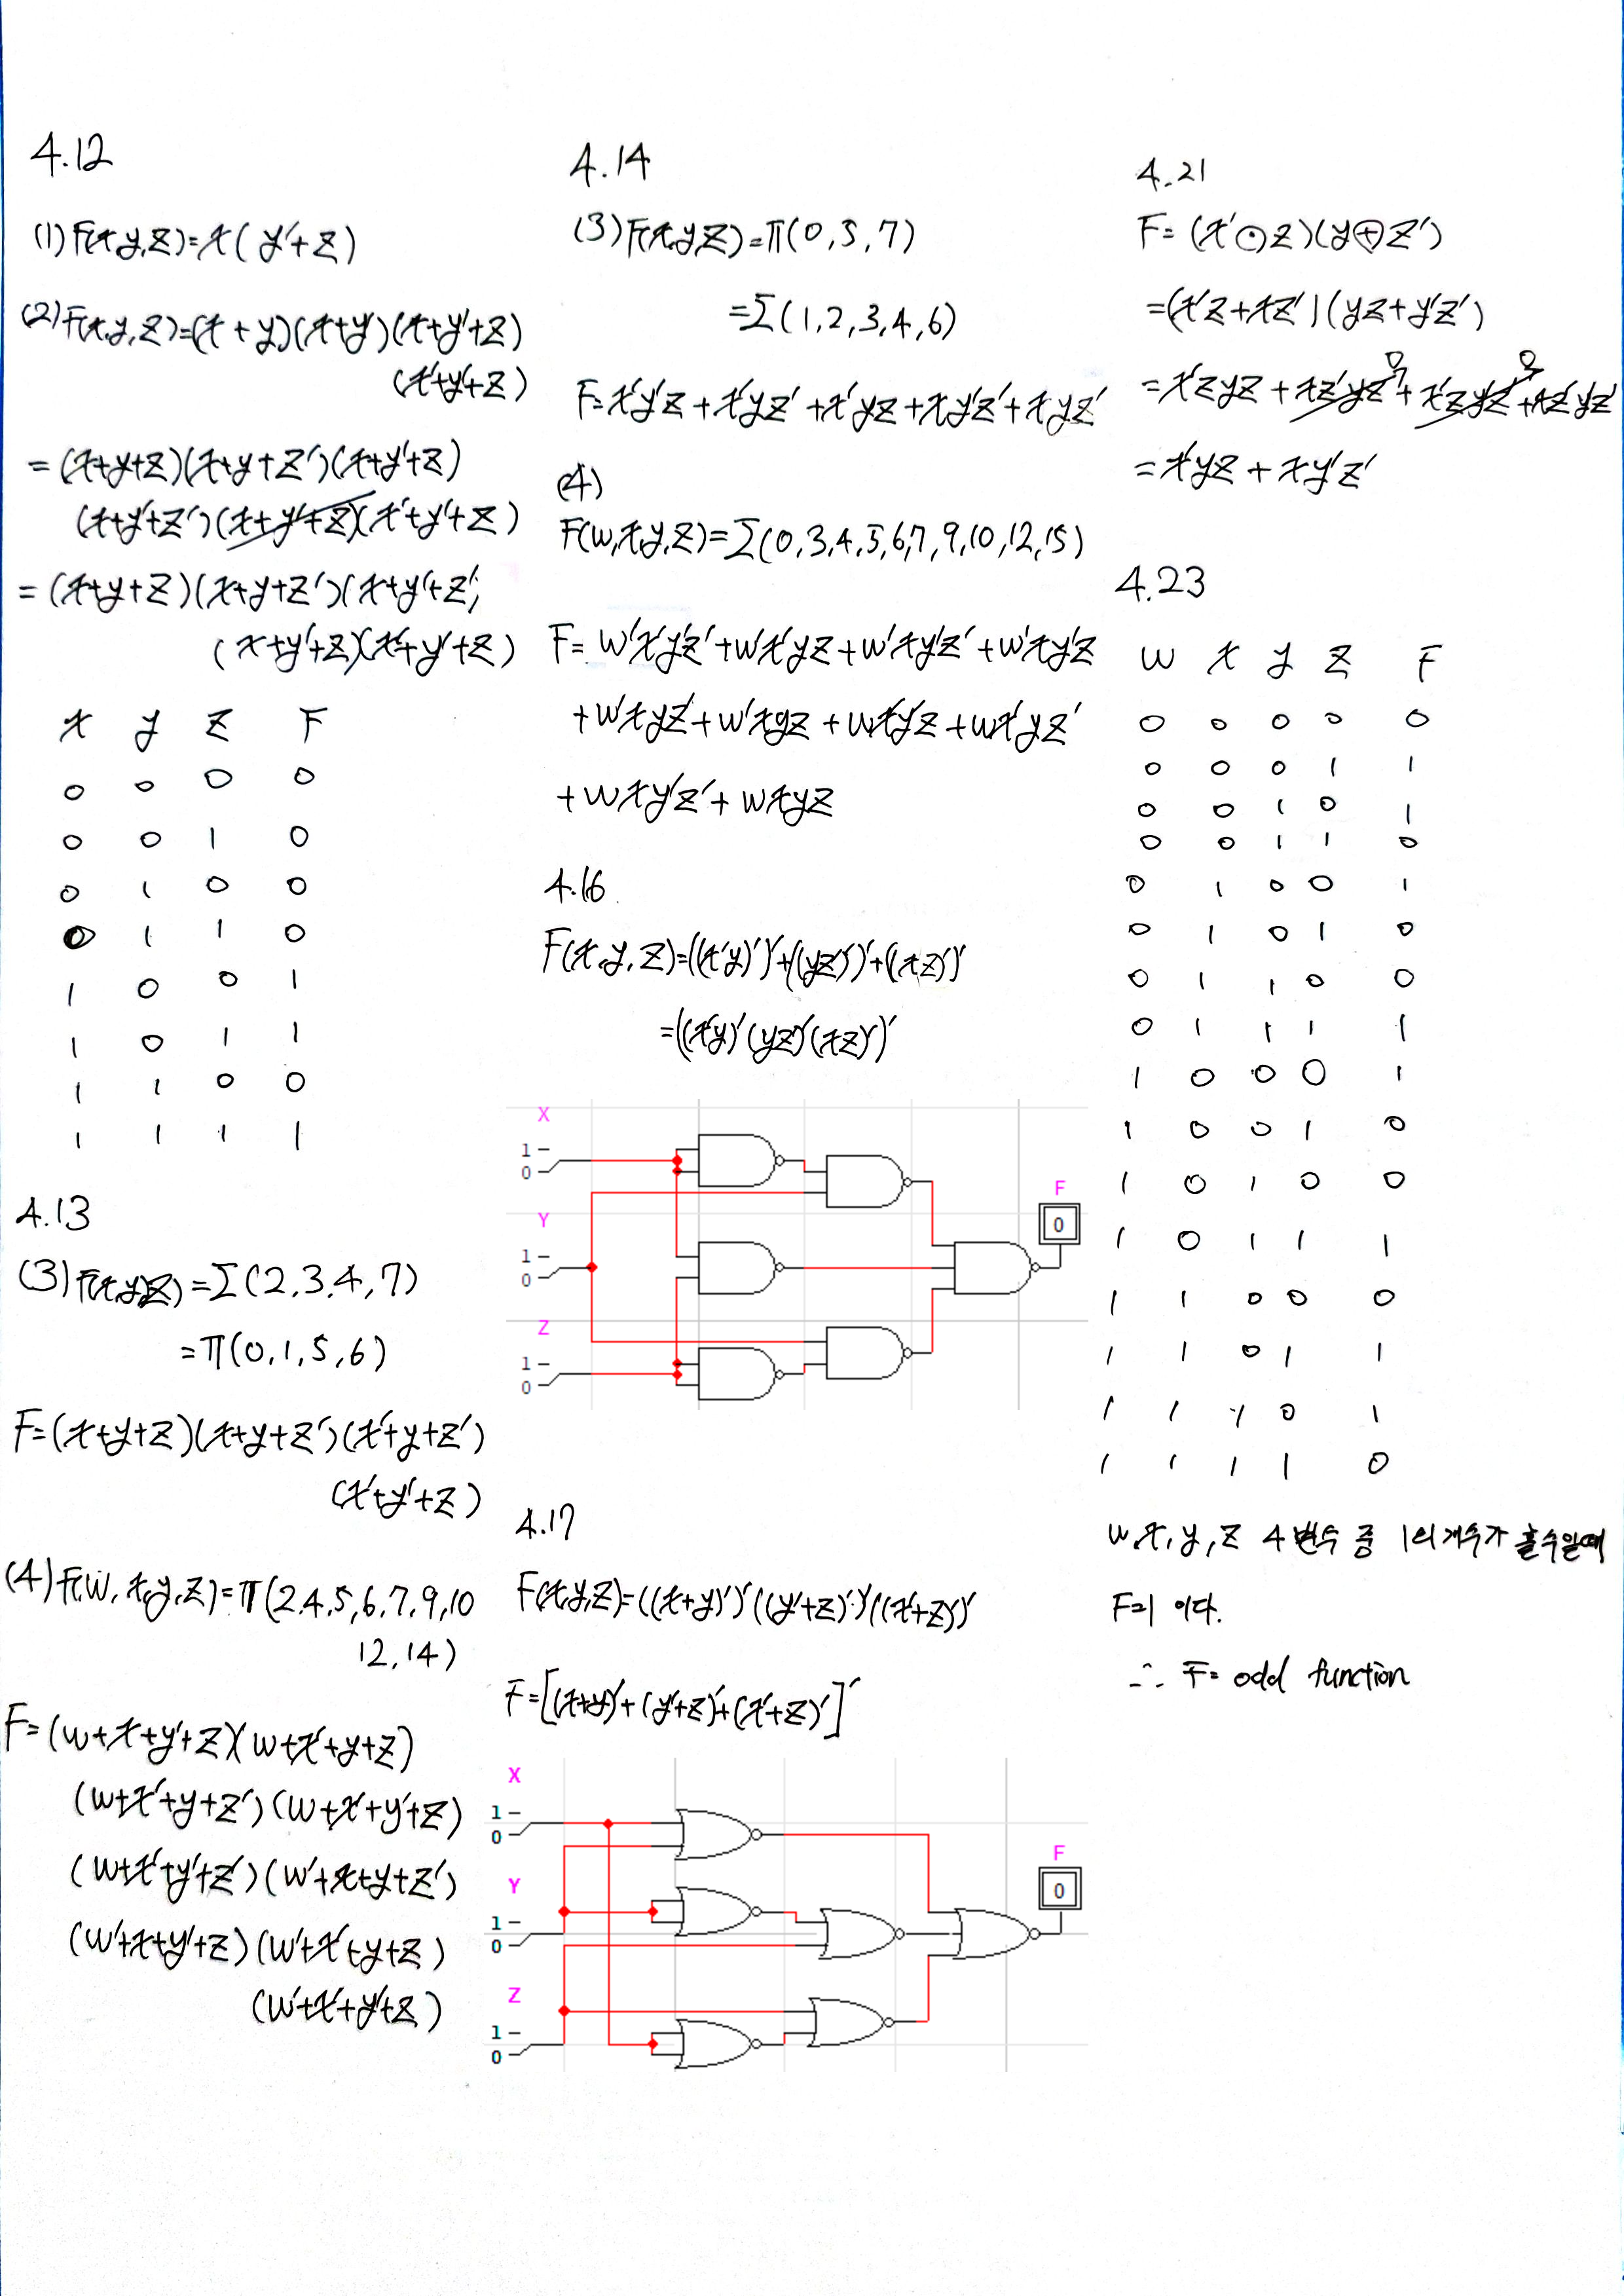 4.12
(1) F(x,y,z)=x(y'+z)
(2) F(x,y,z)=(x+y)(x+y')(x+y'+z)
(x'+y'+z)
=(x+y+z)(x+y+z')(x+y'+z)
(x+y'+z')(x+y'+z)(x'+y'+z)
=(x+y+z)(x+y+z')(x+y'+z')
(x+y'+z)(x'+y'+z)
x y z F
0 0 0 0
0 0 1 0
0 1 0 0
0 1 1 0
1 0 0 1
1 0 1 1
1 1 0 0
1 1 1 1
4.13
(3) F(x,y,z)=Σ(2,3,4,7)
=π(0,1,5,6)
F=(x+y+z)(x+y+z')(x'+y+z')
(x'+y'+z)
(4) F(w,x,y,z)=π(2,4,5,6,7,9,10
12,14)
F=(w+x+y'+z)(w+x'+y+z)
(w+x'+y+z')(w+x'+y'+z)
(w+x'+y'+z')(w'+x+y+z')
(w'+x+y'+z)(w'+x'+y+z)
(w'+x'+y'+z)
4.14
(3) F(x,y,z)=π(0,5,7)
=Σ(1,2,3,4,6)
F=x'y'z+x'yz'+x'yz+xy'z'+xyz'
(4)
F(w,x,y,z)=Σ(0,3,4,5,6,7,9,10,12,15)
F=w'x'y'z'+w'x'yz+w'xy'z'+w'xy'z
+w'xyz'+w'xyz+wx'y'z+wx'yz'
+wxy'z'+wxyz
4.16
F(x,y,z)=((x'y)')'+((yz')')'+((xz)')'
=((x'y)'(yz')'(xz)')'
X
1
0
Y
1
0
Z
1
0
F
0
4.17
F(x,y,z)=((x+y)')'((y'+z)')'((x'+z)')'
F=[(x+y)'+(y'+z)'+(x'+z)']'
X
1
0
Y
1
0
Z
1
0
F
0
4.21
F=(x'⊙z)(y⊕z')
=(x'z+xz')(yz+y'z')
=x'zyz+xz'yz+x'zy'z'+xz'y'z'
0 0
=x'yz+xy'z'
4.23
w x y z F
0 0 0 0 0
0 0 0 1 1
0 0 1 0 1
0 0 1 1 0
0 1 0 0 1
0 1 0 1 0
0 1 1 0 0
0 1 1 1 1
1 0 0 0 1
1 0 0 1 0
1 0 1 0 0
1 0 1 1 1
1 1 0 0 0
1 1 0 1 1
1 1 1 0 1
1 1 1 1 0
w,x,y,z 4변수 중 1의 개수가 홀수일때
F=1 이다.
∴ F= odd function